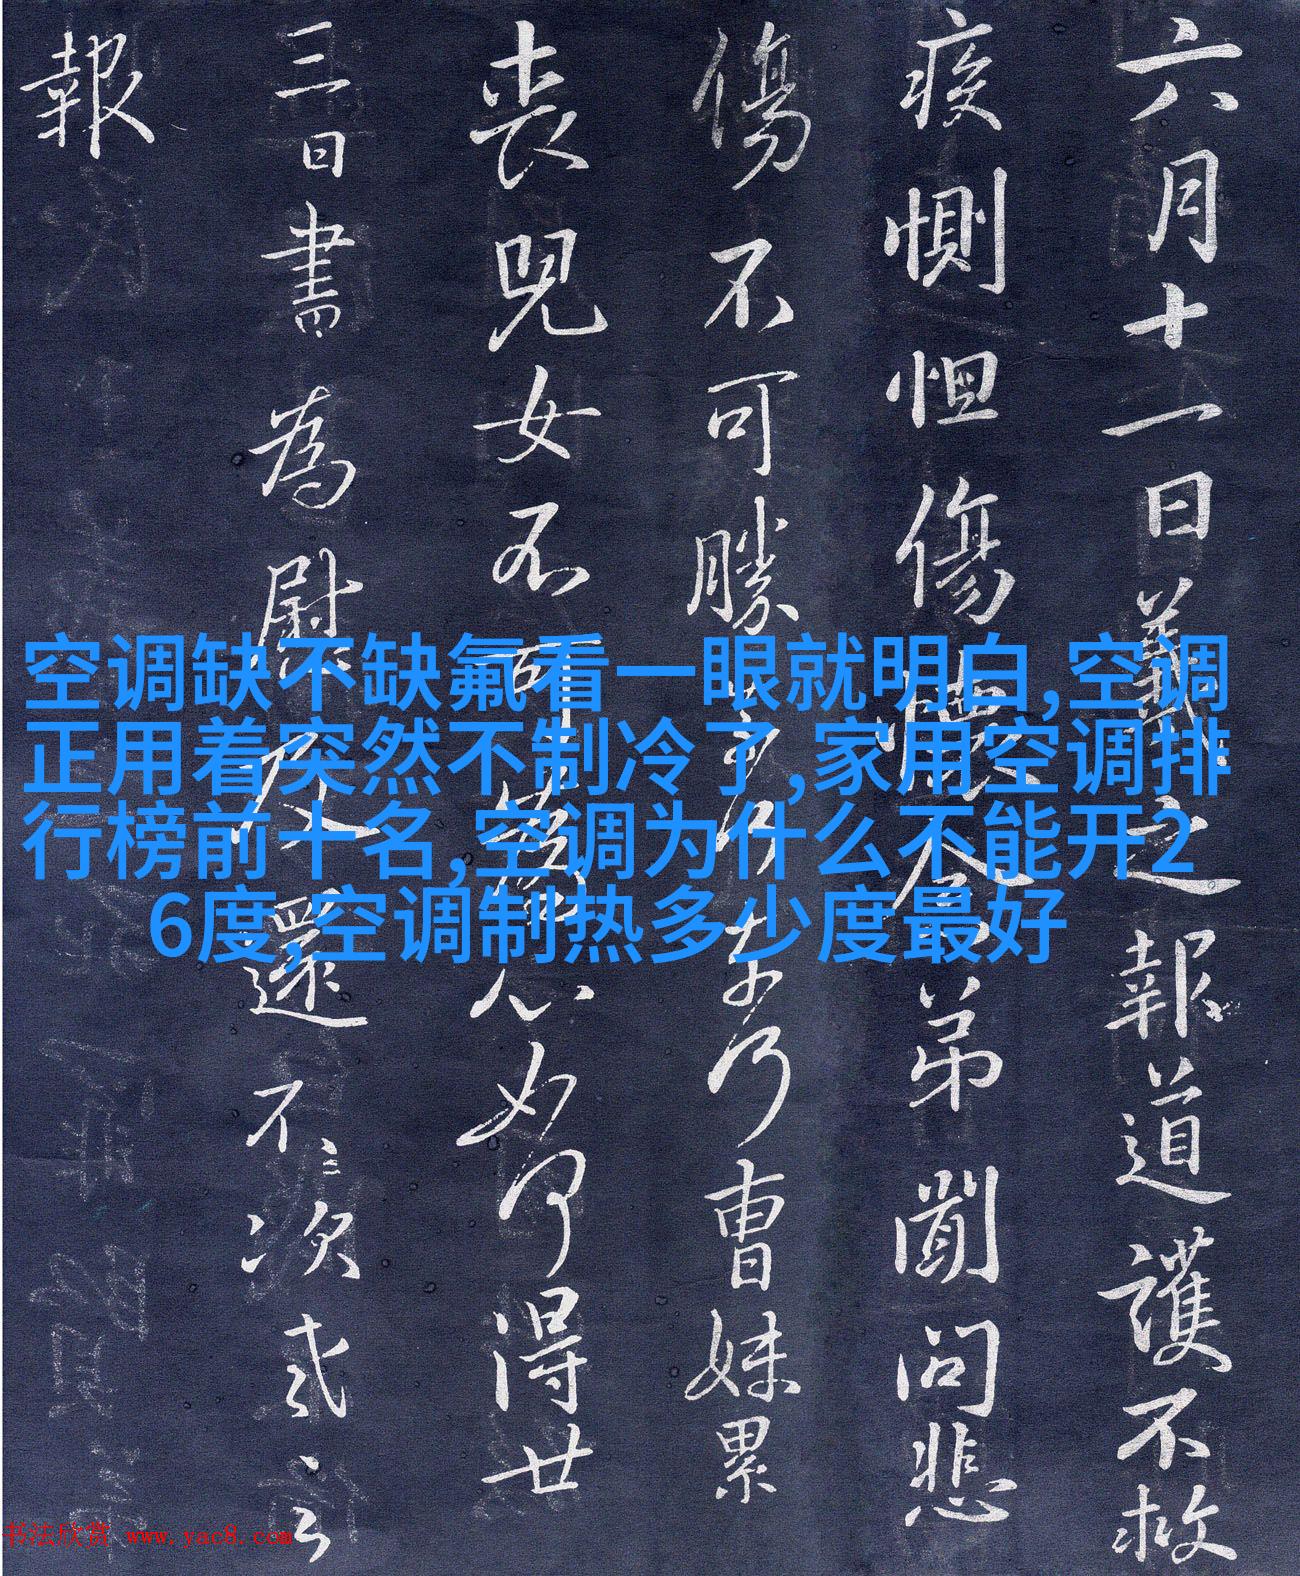 六月十一日羲之報道護不救
疾惻怛傷懷念弟聞問悲
傷不可勝言曹妹累
喪兒女不可為心如何得廿
三日書為慰及還不次
報
空调缺不缺氟看一眼就明白,空调
正用着突然不制冷了,家用空调排
行榜前十名,空调为什么不能开2
6度,空调制热多少度最好
书法欣赏 www.yac8.com